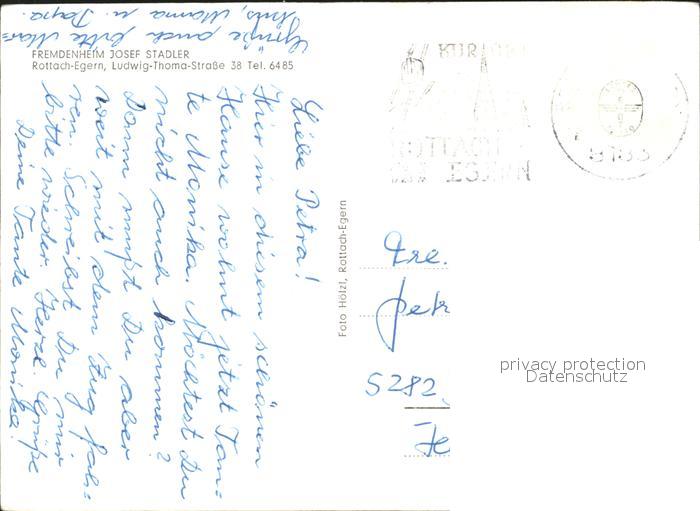 FREMDENHEIM JOSEF STADLER
Rottach-Egern, Ludwig-Thoma-Straße 38 Tel. 6485
Liebe Petra!
Hier in diesem schönen
Hause wohnt jetzt Tan-
te Monika. Möchtest Du
nicht auch kommen?
Dann mußt Du aber
weit mit dem Zug fah=
ren. Schreibst Du mir
bitte wieder. Herzl. Grüße
Deine Tante Monika.
Grüße auch bitte
Mama u. Papa.
Foto Hölzl, Rottach-Egern
KURORT
ROTTACH
EGERN
8183
Fre.
Petr
5282,
privacy protection
Datenschutz